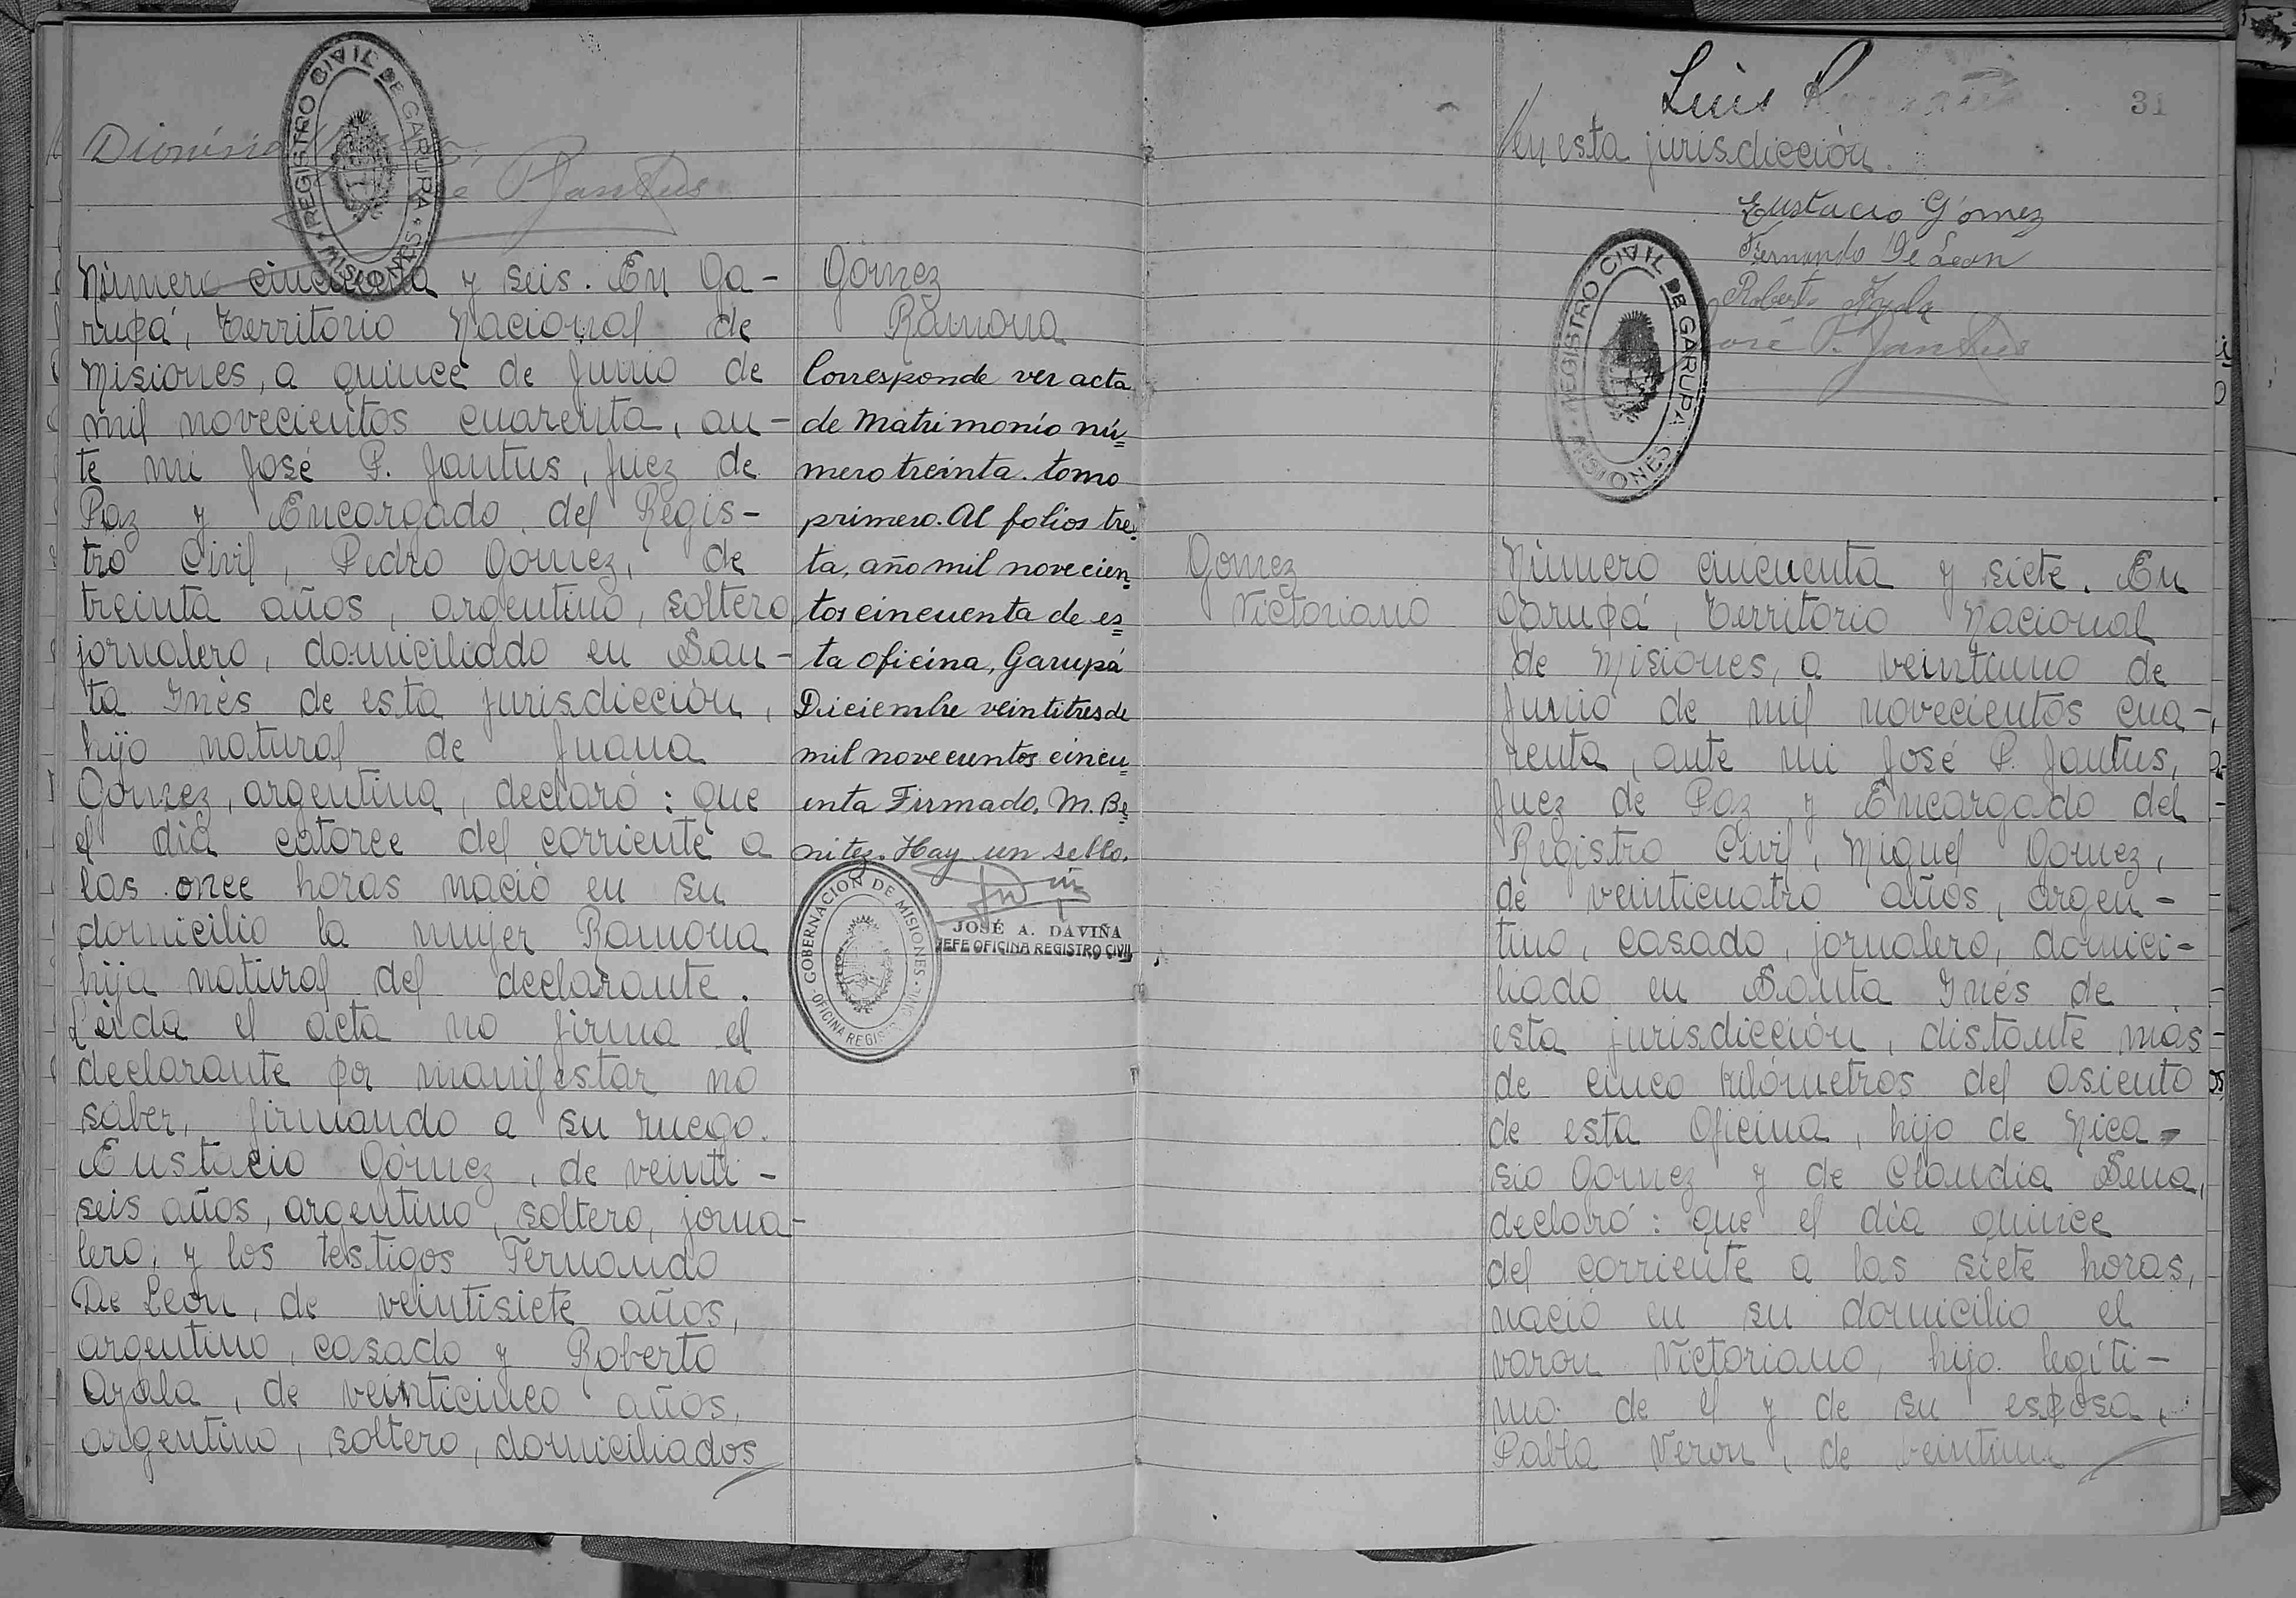 Dionisio
José P. Jantus
REGISTRO CIVIL DE GARUPA
MISIONES
Número cincuenta y seis. En Ga-
rupá, Territorio Nacional de
Misiones, a quince de Junio de
mil novecientos cuarenta, an-
te mi José P. Jantus, Juez de
Paz y Encargado del Regis-
tro Civil, Pedro Gómez, de
treinta años, argentino, soltero
jornalero, domiciliado en San-
ta Inés de esta jurisdicción,
hijo natural de Juana
Gómez, argentina, declaró: que
el día catorce del corriente a
las once horas nació en su
domicilio la mujer Ramona
hija natural del declarante.
Leida el acta no firma el
declarante por manifestar no
saber, firmando a su ruego.
Eustacio Gómez, de veinti-
seis años, argentino, soltero, jorna-
lero; y los testigos Fernando
De Leon, de veintisiete años,
argentino, casado y Roberto
Ayala, de veinticinco años,
argentino, soltero, domiciliados
Gómez
Ramona
Corresponde ver acta
de Matrimonio nú=
mero treinta. tomo
primero. Al folios trein
ta, año mil novecien=
tos cincuenta de es=
ta oficina, Garupá
Diciembre veintitres de
mil novecientos cincu=
enta Firmado. M. Be=
nitez. Hay un sello.
JOSÉ A. DAVIÑA
JEFE OFICINA REGISTRO CIVIL
GOBERNACION DE MISIONES
OFICINA REGISTRO CIVIL
Luis
31
en esta jurisdicción.
Eustacio Gómez
Fernando De Leon
Roberto Ayala
José P. Jantus
REGISTRO CIVIL DE GARUPA
MISIONES
Gomez
Victoriano
Número cincuenta y siete. En
Garupá, Territorio Nacional
de Misiones, a veintiuno de
Junio de mil novecientos cua-
renta, ante mi José P. Jantus,
Juez de Paz y Encargado del
Registro Civil, Miguel Gomez,
de veinticuatro años, argen-
tino, casado, jornalero, domici-
liado en Santa Inés de
esta jurisdicción, distante más
de cinco kilómetros del asiento
de esta Oficina, hijo de Nica-
sio Gomez y de Claudia Sena,
declaró: que el día quince
del corriente a las siete horas,
nació en su domicilio el
varon Victoriano, hijo legíti-
mo de el y de su esposa,
Pabla Veron, de veintiun